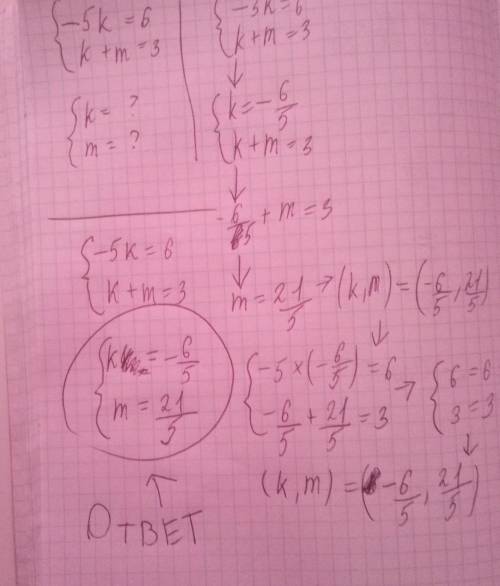 {-5k = 6
{k + m = 3
{k = ?
{m = ?
{-5k = 6
{k + m = 3
{k = -6/5
{m = 21/5
↑
ОТВЕТ
{-5k = 6
{k + m = 3
↓
{k = -6/5
{k + m = 3
↓
-6/5 + m = 3
↓
m = 21/5 → (k, m) = (-6/5, 21/5)
↓
{-5 × (-6/5) = 6 → {6 = 6
{-6/5 + 21/5 = 3 {3 = 3
↓
(k, m) = (-6/5, 21/5)